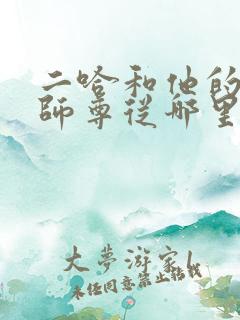 二哈和他的
師尊從哪里
大夢游家l
未经同意禁止转载